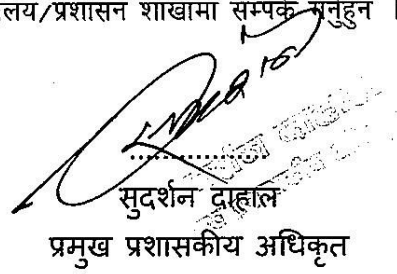 लय/प्रशासन शाखामा सम्पर्क गर्नुहुन ।
..................
सुदर्शन दाहाल
प्रमुख प्रशासकीय अधिकृत